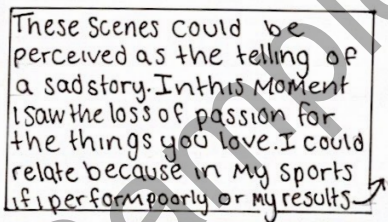 These scenes could be
perceived as the telling of
a sad story. In this moment
I saw the loss of passion for
the things you love. I could
relate because in my sports
if i perform poorly or my results